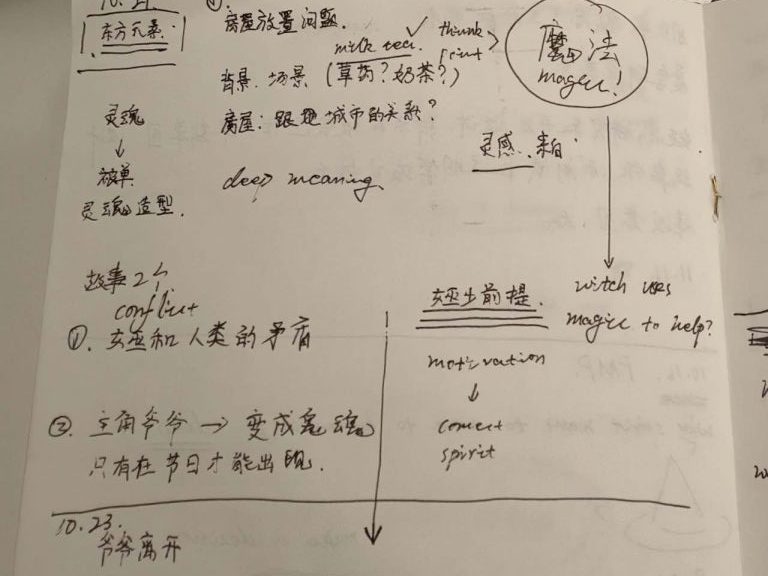 10.21.
① 房屋放置问题.
东方元素.
milk tea. ✓ think
print
背景.场景 (草药?奶茶?)
魔法
magic!
灵魂
↓
被单
灵魂造型.
房屋:跟地城市的关系?
灵感.来自:
deep meaning.
故事2个
conflict
①.女巫和人类的矛盾
②.主角爷爷→变成鬼魂
只有在节日才能出现.
女巫少前提.
motivation
↓
connect
spirit
witch uses
magic to help?
10.23.
爷爷离开
10.16. PMP.